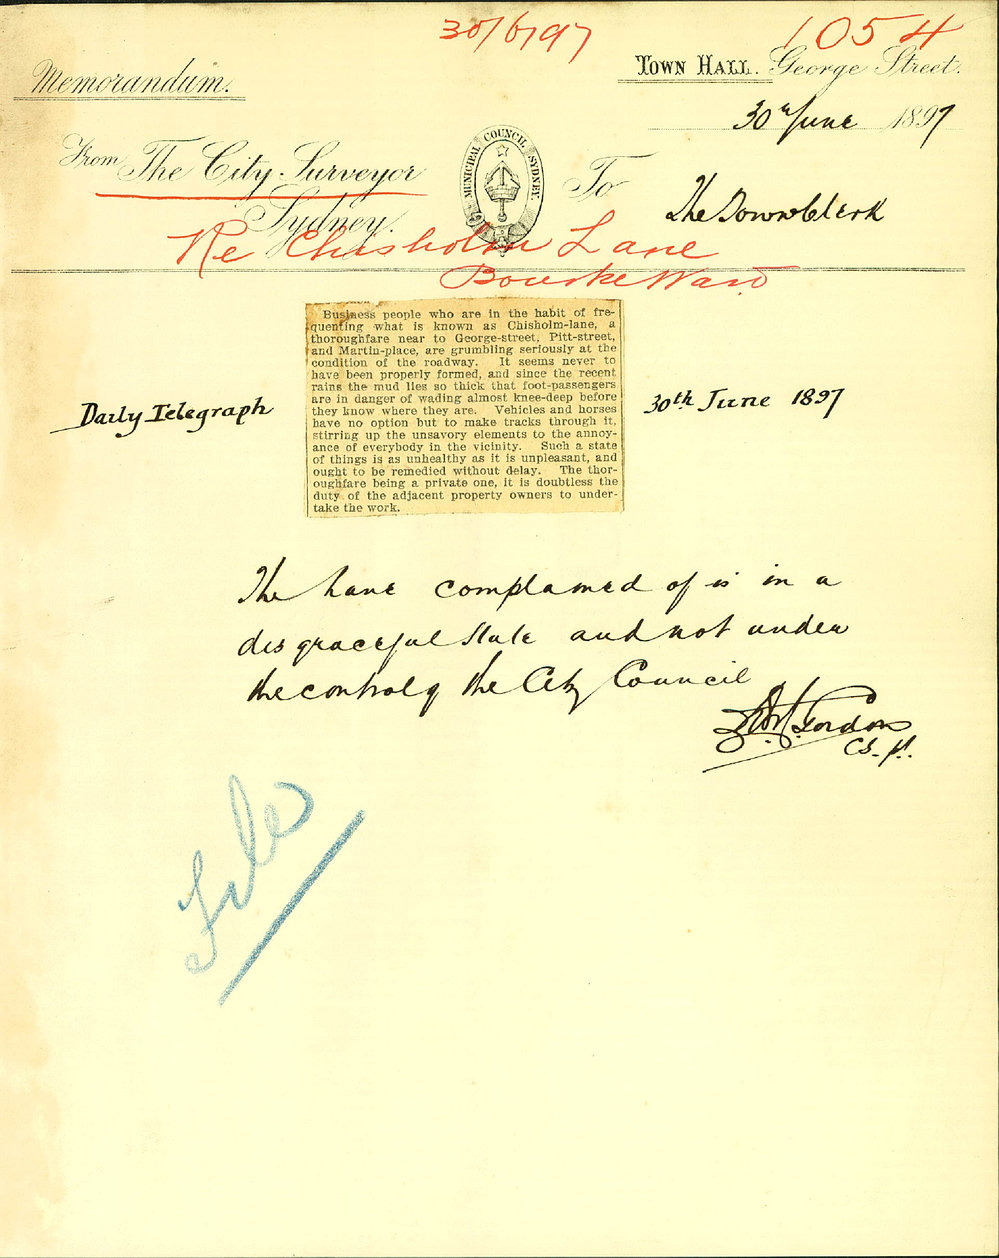 30/6/97
1054
Memorandum.
TOWN HALL. George Street.
30th June 1897
From The City Surveyor
Sydney.
MUNICIPAL COUNCIL SYDNEY.
To
The Town Clerk
Re Chisholm Lane
Bourke Ward
Business people who are in the habit of fre-
quenting what is known as Chisholm-lane, a
thoroughfare near to George-street, Pitt-street,
and Martin-place, are grumbling seriously at the
condition of the roadway. It seems never to
have been properly formed, and since the recent
rains the mud lies so thick that foot-passengers
are in danger of wading almost knee-deep before
they know where they are. Vehicles and horses
have no option but to make tracks through it,
stirring up the unsavory elements to the annoy-
ance of everybody in the vicinity. Such a state
of things is as unhealthy as it is unpleasant, and
ought to be remedied without delay. The thor-
oughfare being a private one, it is doubtless the
duty of the adjacent property owners to under-
take the work.
Daily Telegraph
30th June 1897
The Lane complained of is in a
disgraceful state and not under
the control of the City Council
Gordon
C.S.
File